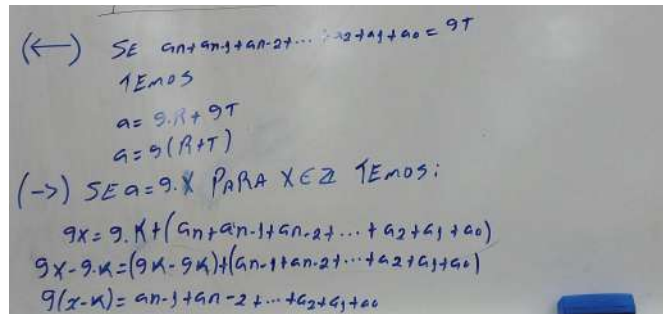 (<—) SE an+an-1+an-2+...+a2+a1+a0= 9T
TEMOS
a= 9.R+9T
a=9(R+T)
(->) SE a=9.X PARA X∈Z TEMOS:
9X=9.K+(an+an-1+an-2+...+a2+a1+a0)
9X-9.K=(9K-9K)+(an-1+an-2+...+a2+a1+a0)
9(x-K)=an-1+an-2+...+a2+a1+a0